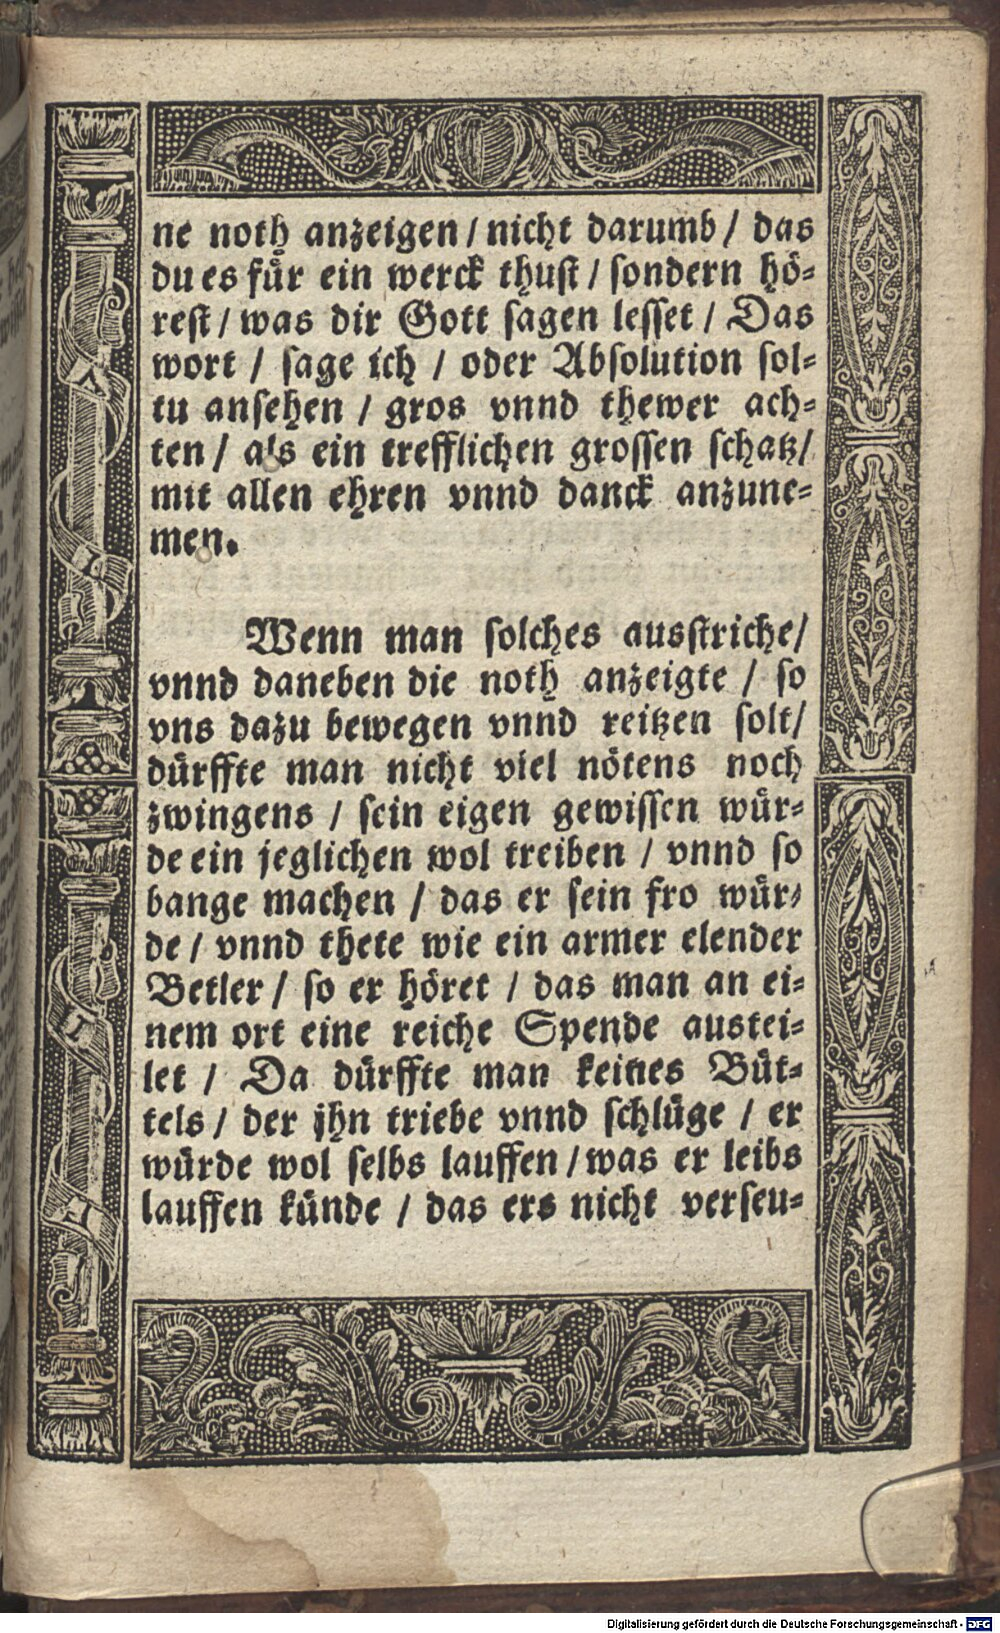 ne noth anzeigen / nicht darumb / das
du es fuͤr ein werck thust / sondern hoͤ⸗
rest / was dir Gott sagen lesset / Das
wort / sage ich / oder Absolution sol⸗
tu ansehen / gros vnnd thewer ach⸗
ten / als ein trefflichen grossen schatz /
mit allen ehren vnnd danck anzune⸗
men.
Wenn man solches ausstriche /
vnnd daneben die noth anzeigte / so
vns dazu bewegen vnnd reitzen solt /
duͤrffte man nicht viel noͤtens noch
zwingens / sein eigen gewissen wuͤr⸗
de ein jeglichen wol treiben / vnnd so
bange machen / das er sein fro wuͤr⸗
de / vnnd thete wie ein armer elender
Betler / so er hoͤret / das man an ei⸗
nem ort eine reiche Spende austei⸗
let / Da duͤrffte man keines Buͤt⸗
tels / der jhn triebe vnnd schluͤge / er
wuͤrde wol selbs lauffen / was er leibs
lauffen kuͤnde / das ers nicht verseu⸗
Digitalisierung gefördert durch die Deutsche Forschungsgemeinschaft - DFG